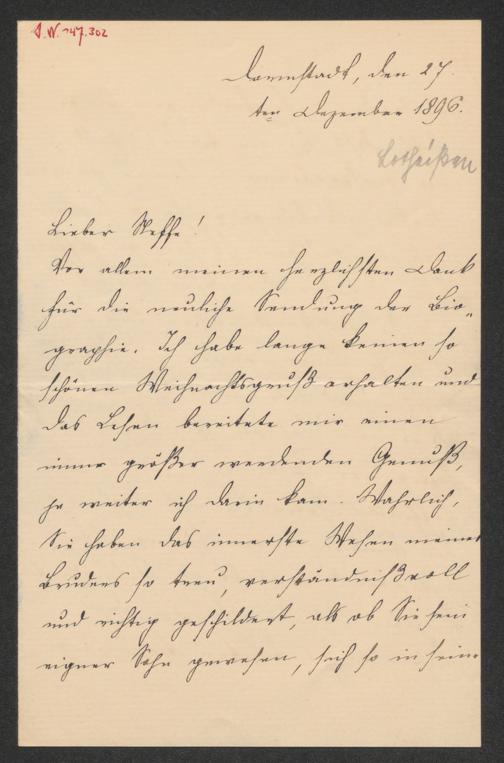 I.N. 147.302
Darmstadt, den 27.
ten Dezember 1896.
Lotheißen
Lieber Neffe!
Vor allem meinen herzlichsten Dank
für die neuliche Sendung der Bio-
graphie. Ich habe lange keinen so
schönen Weihnachtsgruß erhalten und
das Lesen bereitete mir einen
immer größer werdenden Genuß,
je weiter ich darin kam. Wahrlich,
Sie haben das innerste Wesen meines
Bruders so treu, verständnißvoll
und richtig geschildert, als ob Sie sein
eigner Sohn gewesen, sich so in seine